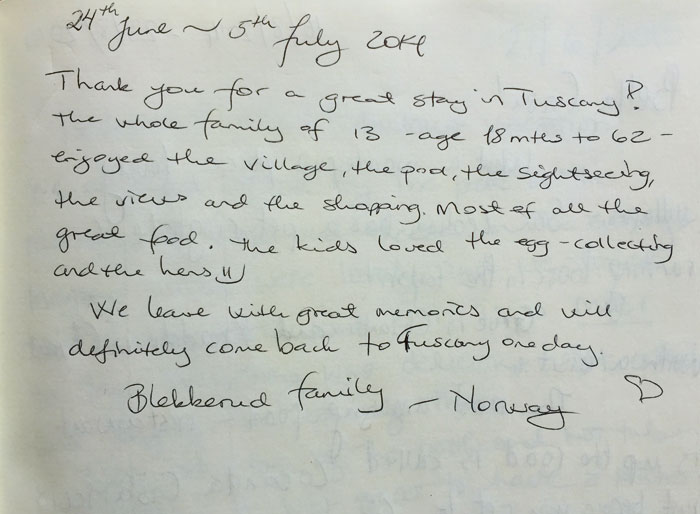 24th June ~ 5th July 2014
Thank you for a great stay in Tuscany!
The whole family of 13 - age 18 mths to 62 -
enjoyed the village, the pool, the sightseeing,
the views and the shopping. Most of all the
great food. The kids loved the egg-collecting
and the hens =)
We leave with great memories and will
definitely come back to Tuscany one day.
Blekkerud family - Norway ♡